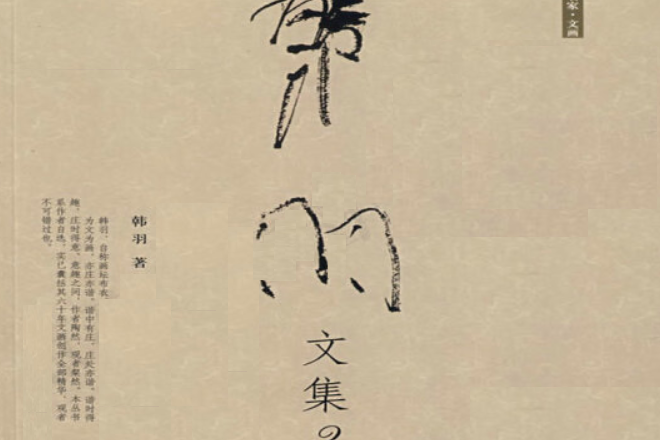 家·文画
韩羽
文集2
韩羽 著
韩羽，自称画坛布衣，
为文为画，亦庄亦谐。谐中有庄，庄处亦谐。谐时得
趣，庄时得意。意趣之间，作者陶然，观者粲然。本丛书
系作者自选，实已囊括其六十年文画创作全部精华，观者
不可错过也。